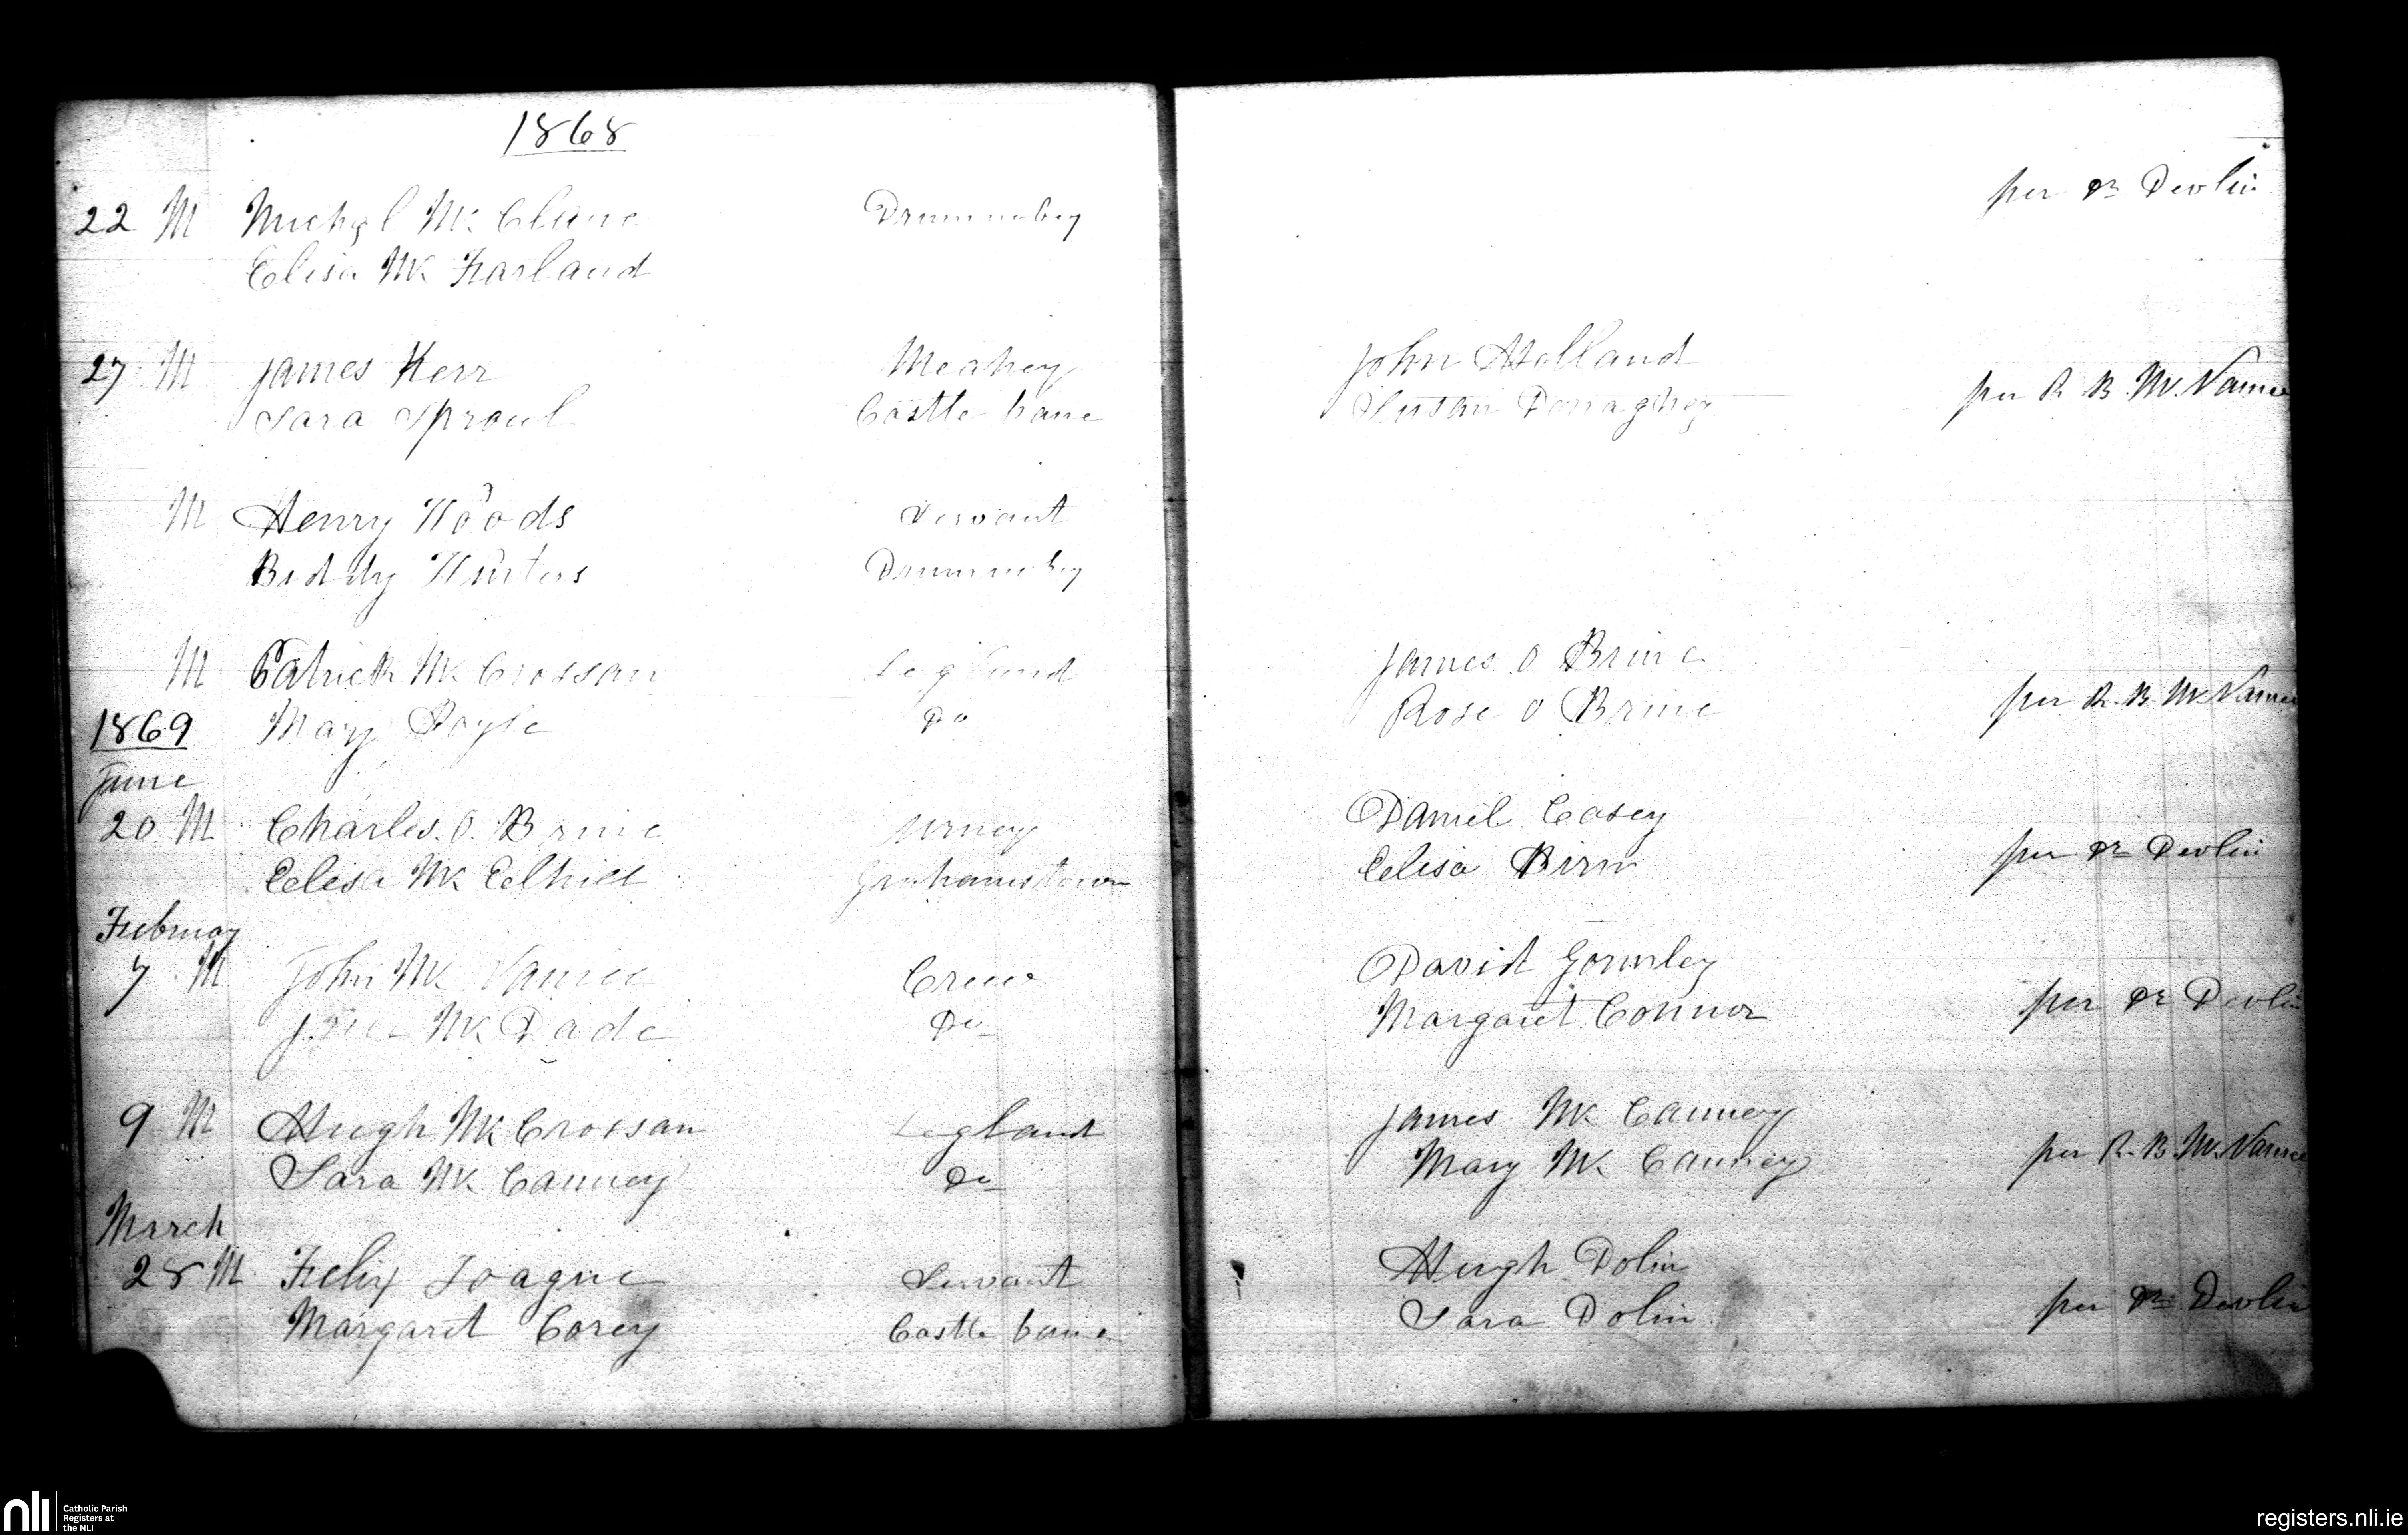 1868
22 M Michal Mc Clane Drumnabey per Dr Devlin
Elisa Mc Farland
27 M James Kerr Meahey John Holland
Sara Sproul Castle bane Susan Donaghey per R B. Mc Namee
M Henry Woods Servant
Biddy Winters Drumnabey
M Patrick Mc Crossan Legland James O Brine
1869 Mary Doyle Do Rose O Brine per R. B. Mc Namee
June
20 M Charles O. Brine Urney Daniel Casey
Elisa Mc Elhill Grahamstown Elisa Birn per Dr Devlin
February
7 M John Mc Namee Crew David Gormley
Mc Dade Do Margaret Connor per Dr Devlin
9 M Hugh Mc Crossan Legland James Mc Canney
Sara Mc Canney Do Mary Mc Canney per R. B. Mc Namee
March
28 M Felix Toague Servant Hugh Dolin
Margaret Corey Castle bane Sara Dolin per Dr Devlin
nli Catholic Parish
Registers at
the NLI
registers.nli.ie